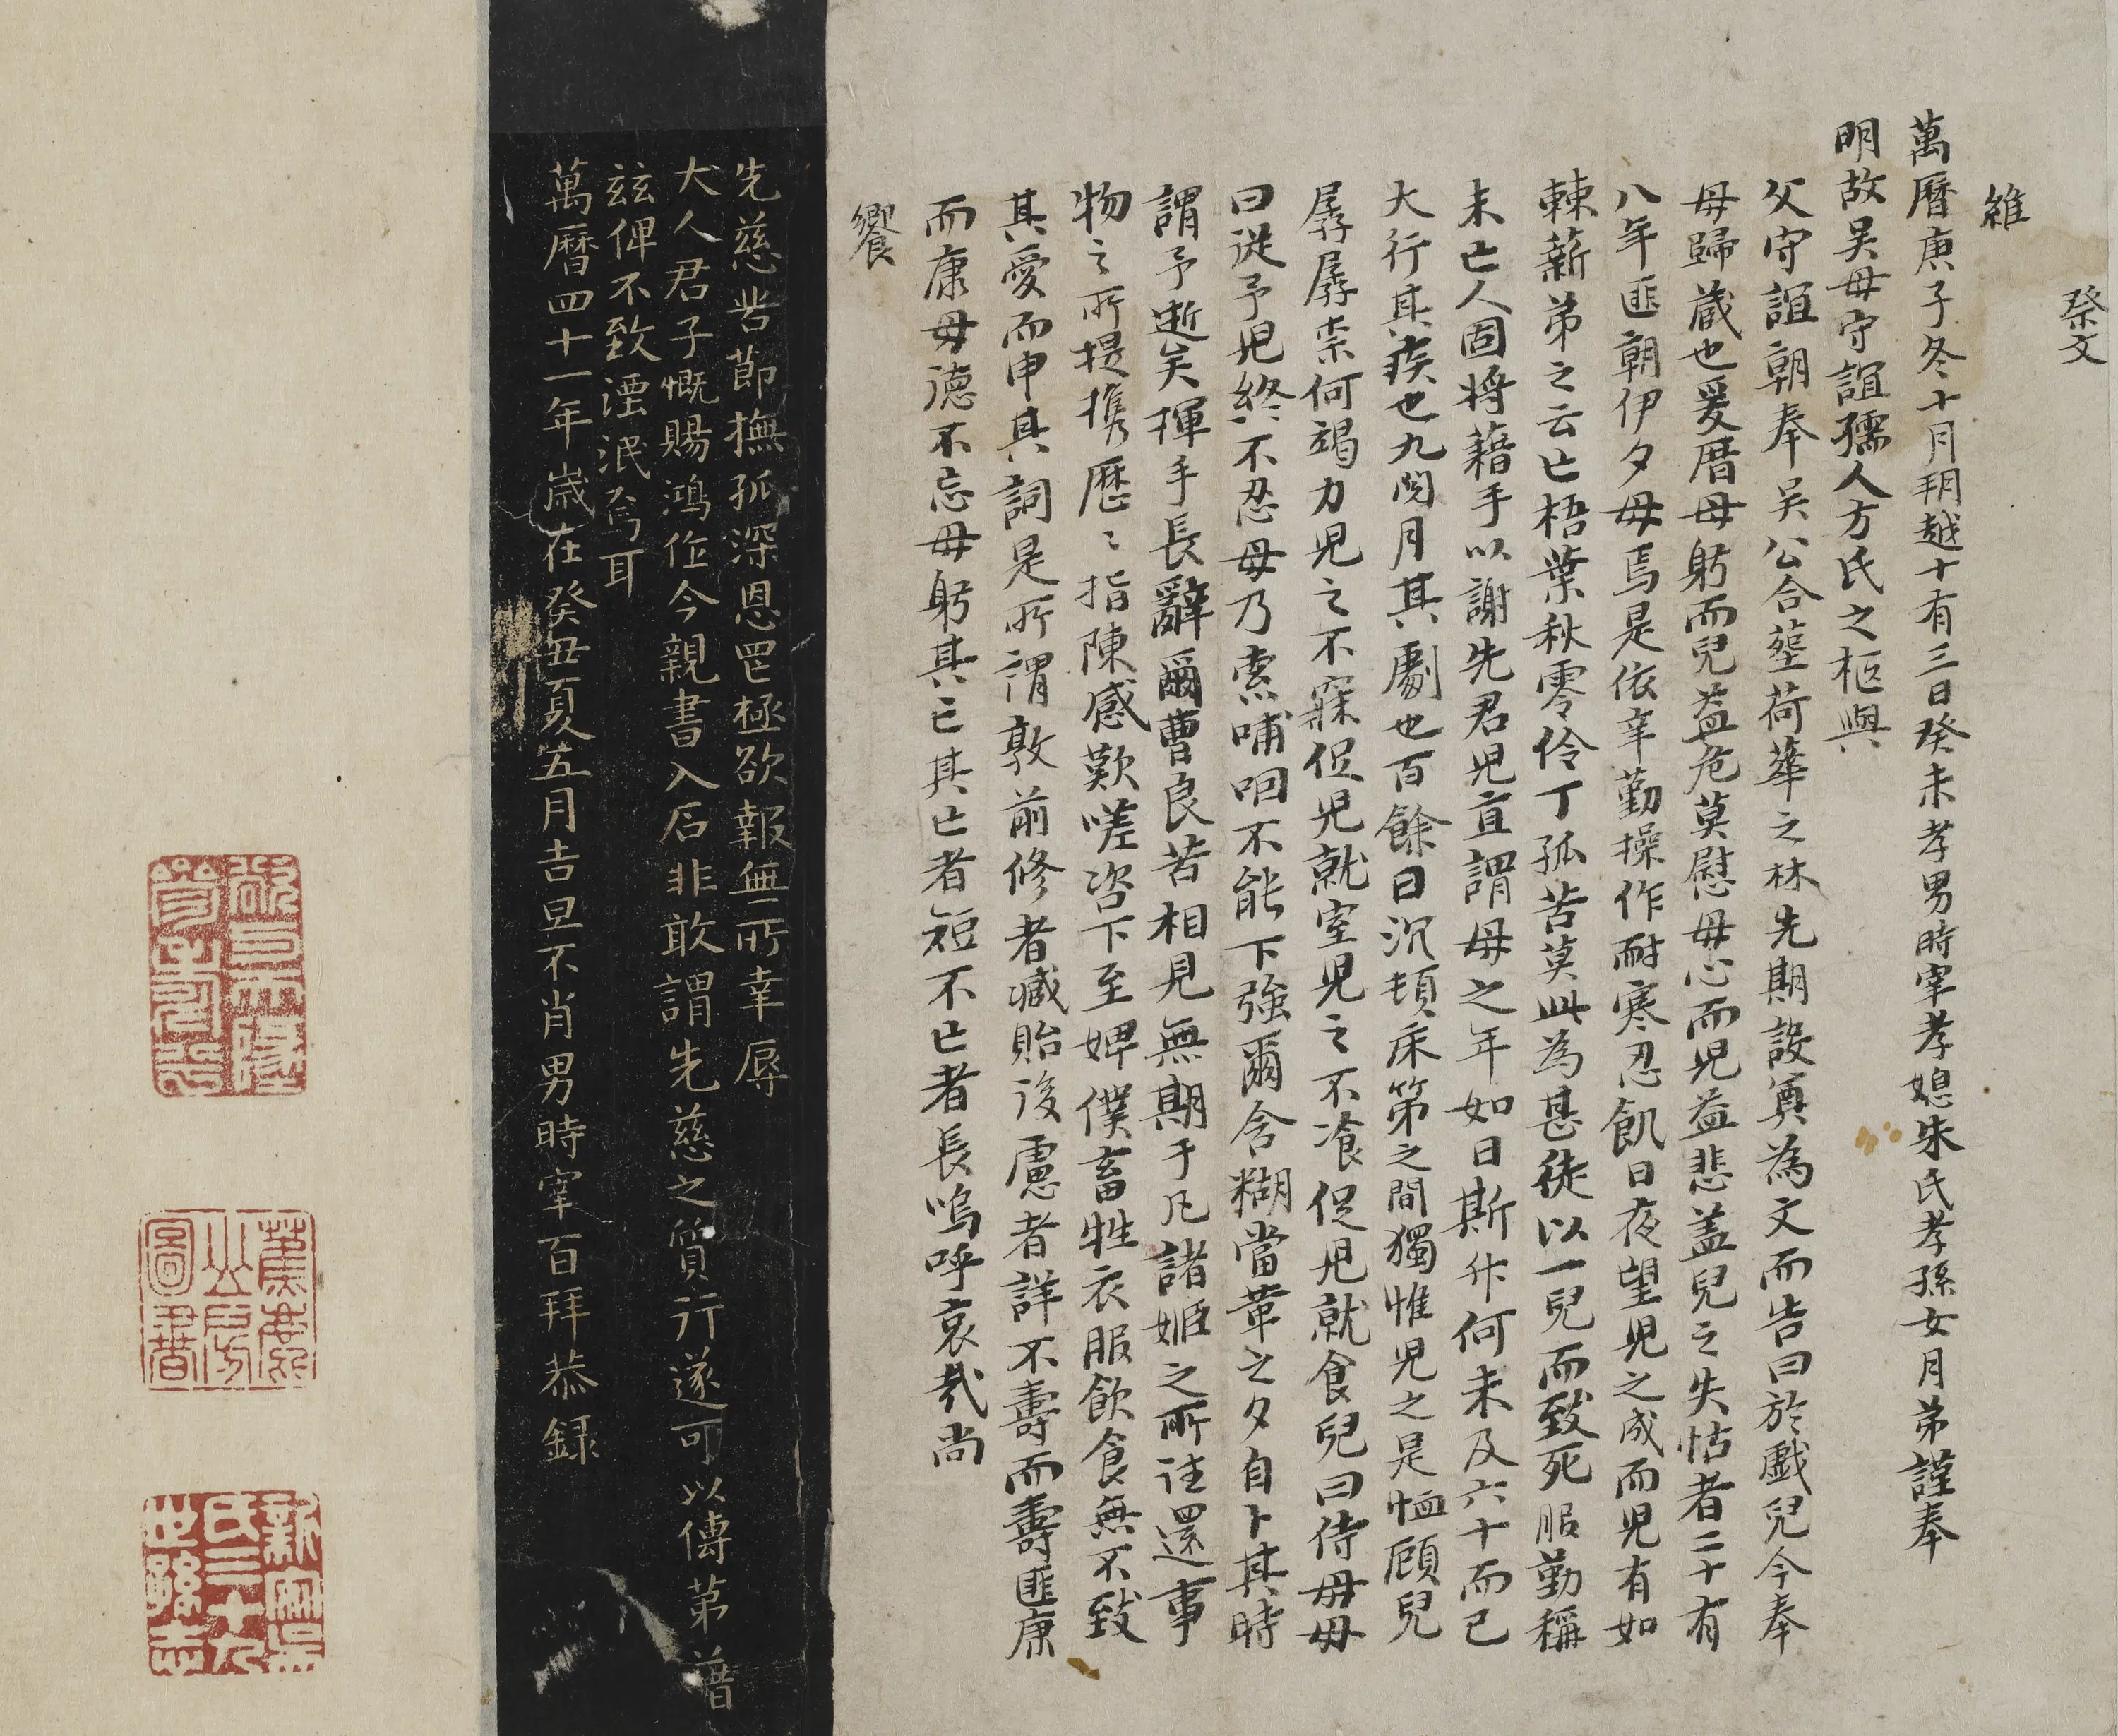 祭文
維
萬曆庚子冬十月朔越十有三日癸未孝男時宰孝媳朱氏孝孫女月弟謹奉
明故吳母守誼孺人方氏之柩與
父守誼朝奉吳公合塟荷華之林先期設奠為文而告曰於戲兒今奉
母歸藏也爰厝母躬而兒益危莫慰母心而兒益悲蓋兒之失怙者二十有
八年匪朝伊夕母焉是依辛勤操作耐寒忍飢日夜望兒之成而兒有如
棘薪弟之云亡梧葉秋零伶丁孤苦莫此為甚徒以一兒而致死服勤稱
未亡人固將藉手以謝先君兒直謂母之年如日斯升何未及六十而已
大行其疾也九閱月其劇也百餘日沉頓床笫之間獨惟兒之是恤顧兒
孱孱柰何竭力兒之不寐促兒就室兒之不飡促兒就食兒曰侍母母
曰從予兒終不忍母乃索哺咽不能下強爾含糊當革之夕自卜其時
謂予逝矣揮手長辭爾曹良苦相見無期于凡諸姬之所往還事
物之所提携歷〻指陳感歎嗟咨下至婢僕畜牲衣服飲食無不致
其愛而申其詞是所謂敦前修者臧貽後慮者詳不壽而壽匪康
而康母德不忘母躬其亡其亡者短不亡者長嗚呼哀哉尚
饗
先慈苦節撫孤深恩罔極欲報無所幸辱
大人君子慨賜鴻作今親書入石非敢謂先慈之質行遂可以傳第普
茲俾不致湮泯焉耳
萬曆四十一年歲在癸丑夏五月吉旦不肖男時宰百拜恭録
圖書
新
氏三十九
世孫